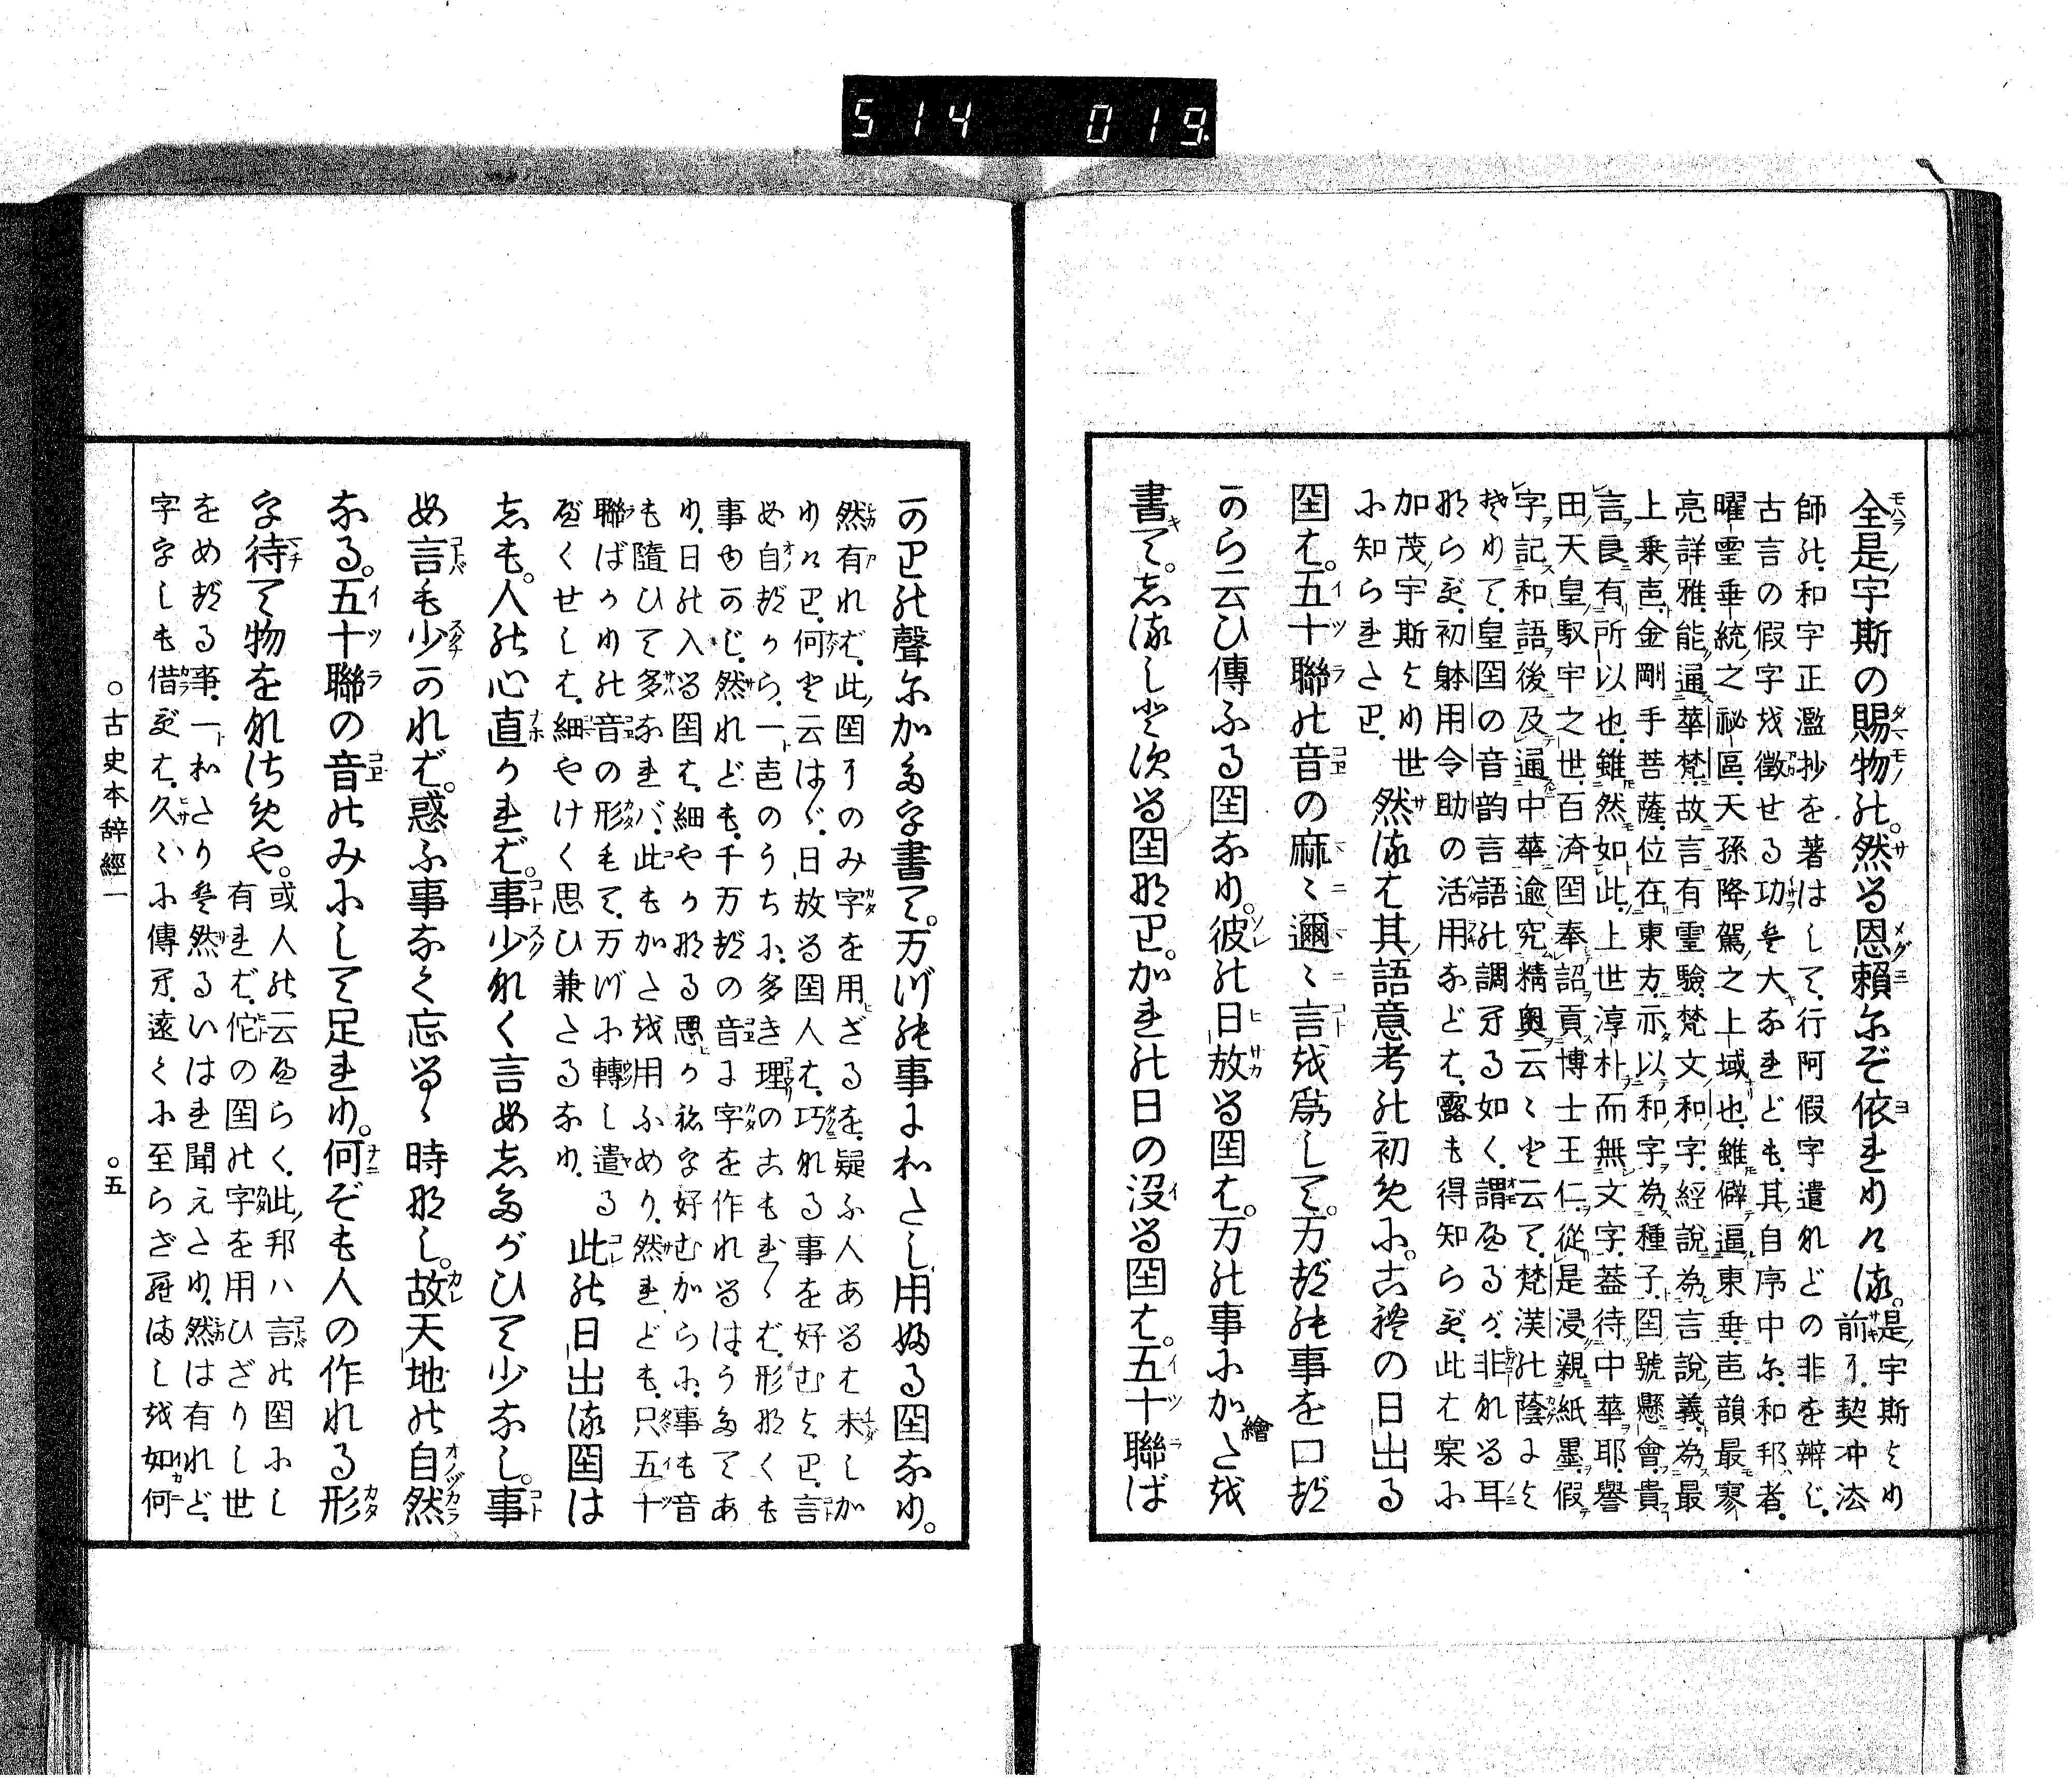 514 019.
全是宇斯の賜物れ。然る恩頼尓ぞ依れりける。是宇斯より
前に契冲法
師の和字正濫抄を著はして、行阿假字遣れどの非を辨じ、
古言の假字を徴せる功は大なれども、其自序中に、和邦者、
曜霊垂統之祕區、天孫降駕之上域也、雖僻逼東垂、音韻最寥
亮詳雅、能通華梵、故言有霊驗、梵文和字、經説為言説義、為最
上乗、音金剛手菩薩、位在東方、示以和字為種子、国號懸會、貴
言良有所以也、雖然如此、上世淳朴而無文字、蓋待中華耶、譽
田天皇馭宇之世、百済国奉詔貢博士王仁、從是浸親紙墨、假
字記和語、後及通中華、逾究精奥云々と云て、梵漢の蔭によ
そりて、皇国の音韵言語の調ずる如く、謂へるが非れる耳
ならず、初躰用令助の活用などは、露も得知らず、此は宲に
加茂宇斯より世
に知られたり。
然るは其語意考の初めに、古禮の日出る
国は。五十聯の音の麻々邇々言を為して。万づの事を口づ
から云ひ傳ふる国なり。彼の日放る国は。万の事にか繪たを
書て。しるしとする国なり。かれの日の没る国は。五十聯ば
かりの聲にかた字書て。万づの事にわたし用ふる国なり。
然有れば、此国にのみ字を用ざるを、疑ふ人あるは未しか
りけり、何と云はゞ、日放る国人は、巧れる事を好むより、言
め自づから、一音のうちに、多き理のこもれゝば、形なくも
事ゆかじ、然れども、千万づの音に字を作れるは、うたてあ
り、日の入る国は、細やかなる思ひか、ね字好むからに、事も音
も隨ひて多なれバ、此もかたを用ふめり、然れども、只五十
聯ばかりの音の形もて、万づに轉し遣る
べくせしは、細やけく思ひ兼たるなり。
此の日出る国は
しも。人の心直かれば。事少れく言めしたがひて少なし。事
め言も少のれば。惑ふ事なく忘るゝ時なし。故天地の自然
なる。五十聯の音のみにして足れり。何ぞも人の作れる形
字待て物をれさめや。或人の云へらく、此邦ハ言の国にし
有れば、佗の国の字を用ひざりし世
をめづる事、一わたりは然るいはれ聞えたり、然は有れど、
字字しも借ずは、久しに傳ず、遠くに至らざ羅ましを如何
○古史本辭經一　○五